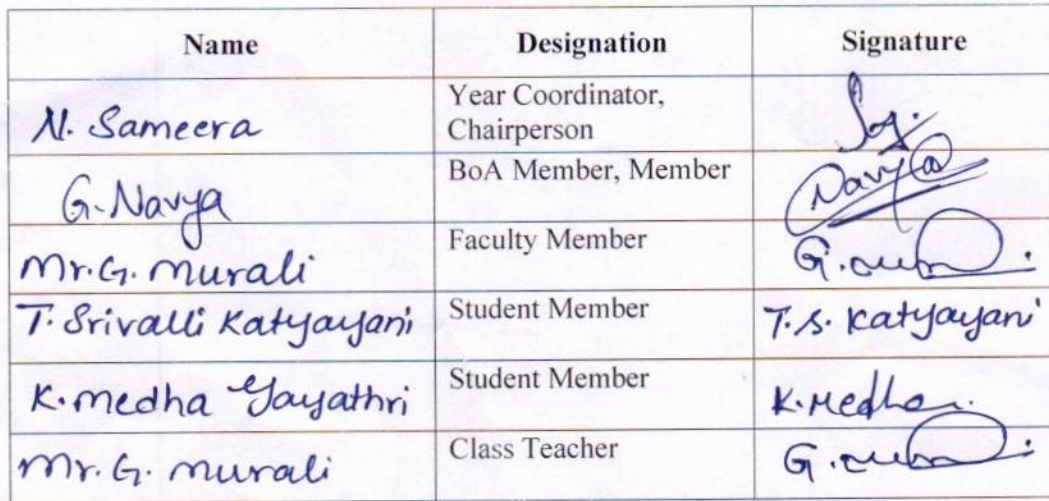 Name Designation Signature
N. Sameera Year Coordinator,
Chairperson
G. Navya BoA Member, Member Navya
Mr. G. Murali Faculty Member
T. Srivalli Katyayani Student Member T.S. Katyayani
K. Medha Gayathri Student Member K. Medha
Mr. G. Murali Class Teacher